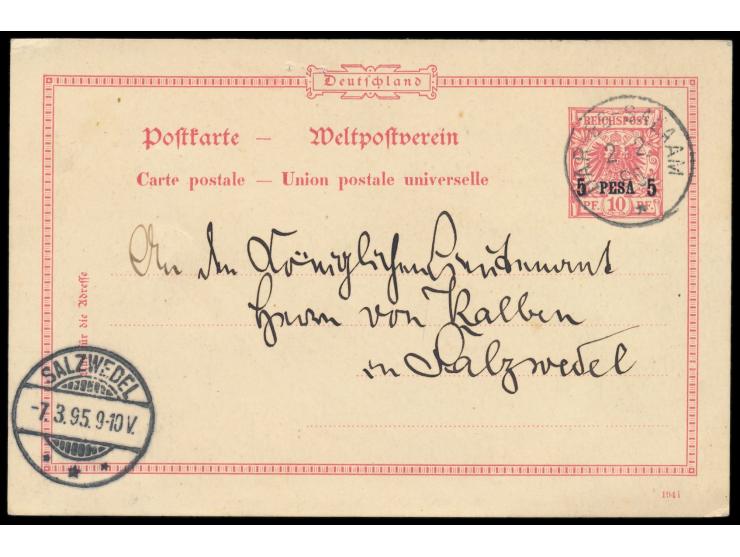 Deutschland
REICHSPOST
Postkarte — Weltpostverein
Carte postale — Union postale universelle
DAR-ES-SALAAM
2 2
95
5 PESA 5
PF. 10 PF.
An den Königlichen Lieutenant
Herrn von Kalben
in Salzwedel
für die Adresse
SALZWEDEL
-7.3.95.9-10V.
1941